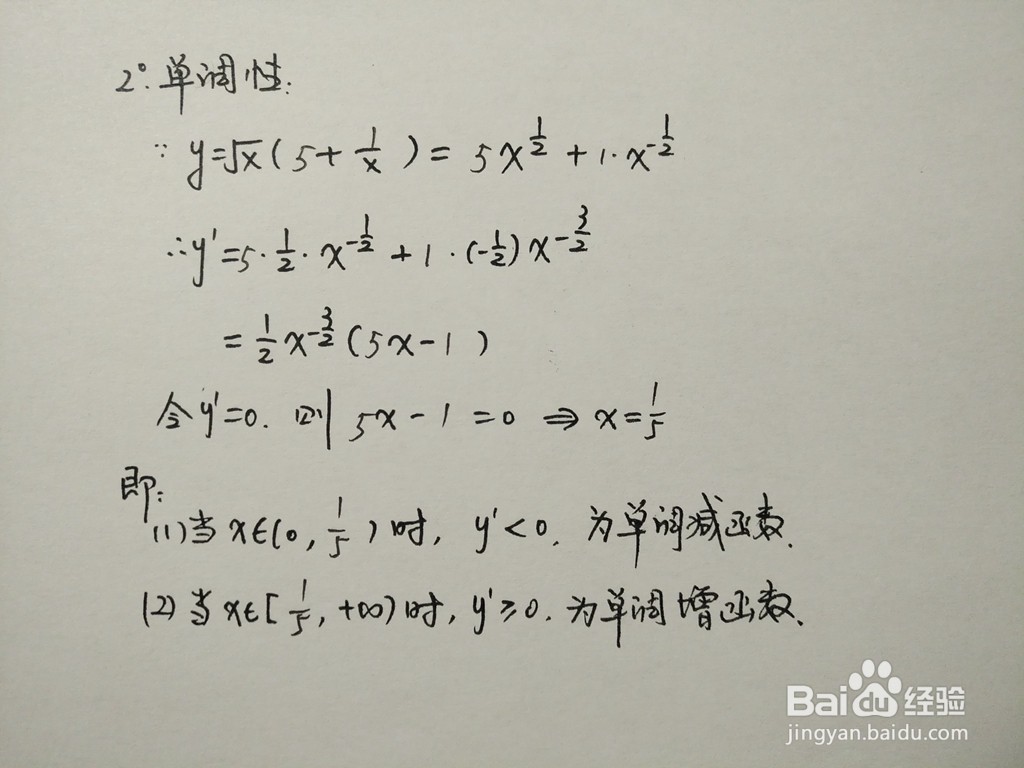 2°. 单调性:
∵ y=√x(5+1/x)=5x^(1/2)+1·x^(-1/2)
∴y'=5·1/2·x^(-1/2)+1·(-1/2)x^(-3/2)
=1/2x^(-3/2)(5x-1)
令y'=0. 则5x-1=0⇒x=1/5
即:
(1)当x∈(0,1/5)时, y'<0. 为单调减函数.
(2)当x∈[1/5,+∞)时, y'≥0. 为单调增函数.
Baidu经验
jingyan.baidu.com